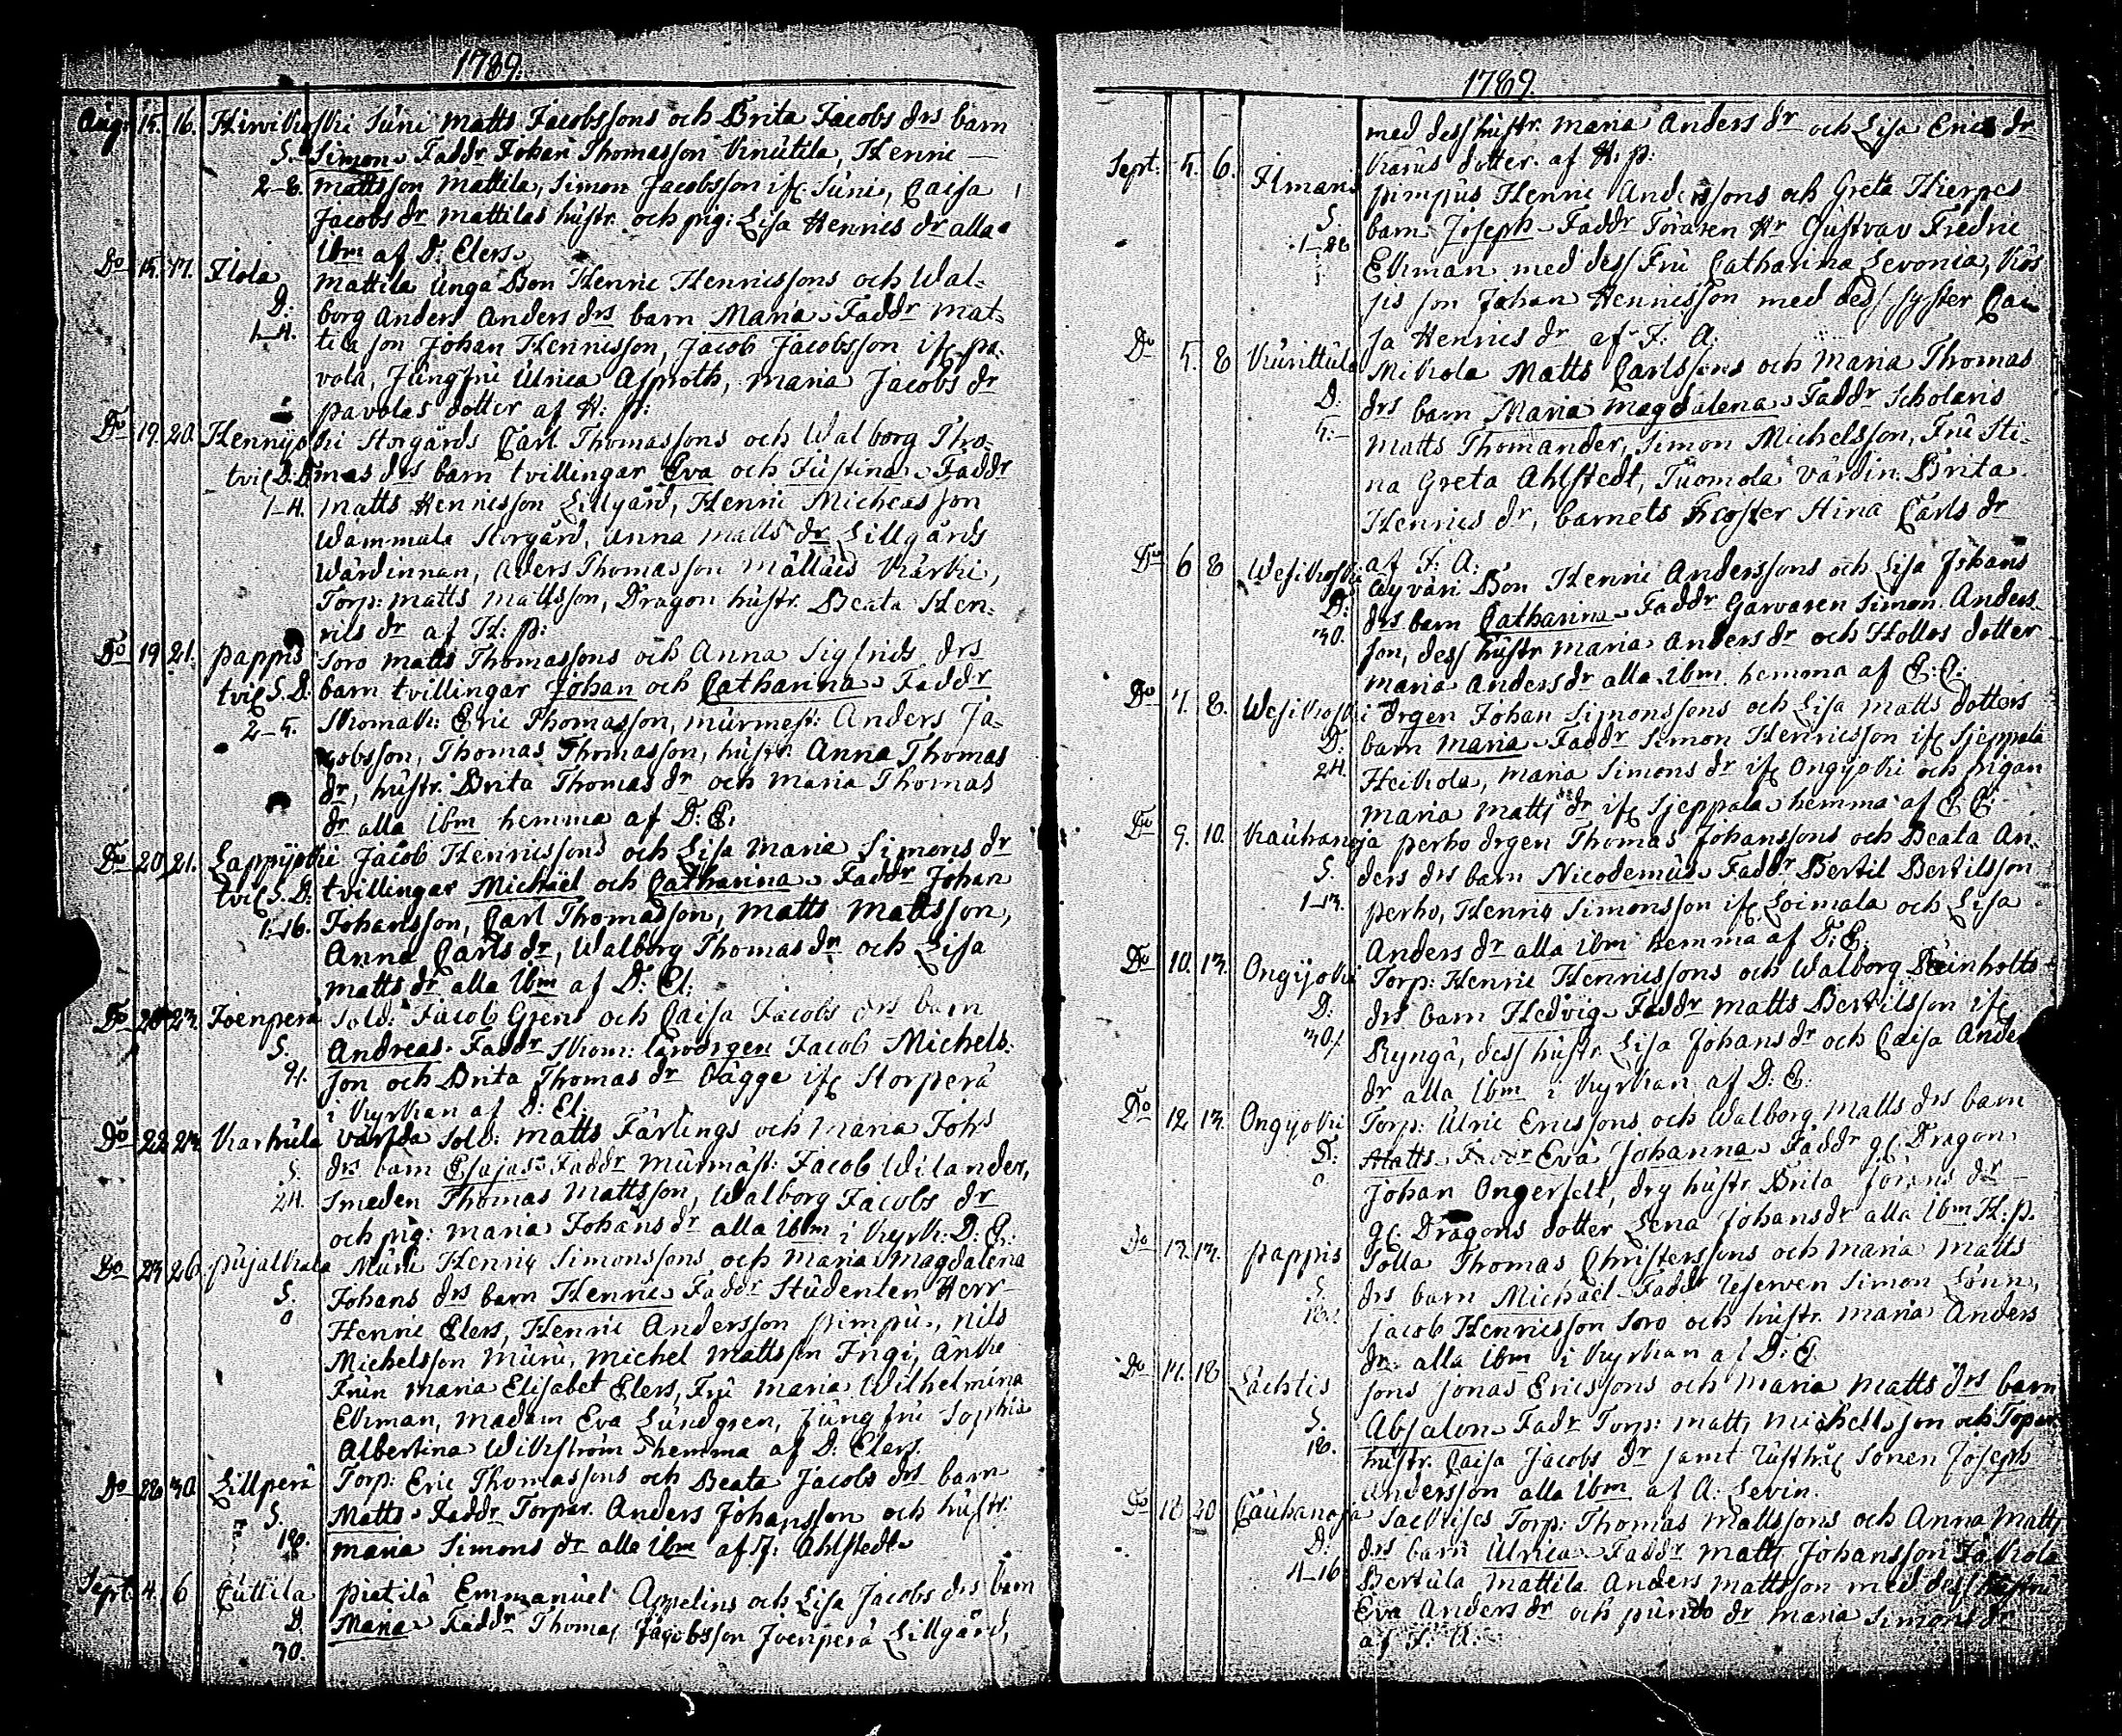 1789.
Aug: 15. 16. Hirvikoski Suni Matts Jacobssons och Brita Jacobs drs barn
S. Simon. Faddr Johan Thomasson Knutila, Henric
2-8. Mattsson Mattila, Simon Jacobsson ifr Suni, Caisa
Jacobs dr Mattilas hustr. och pig: Lisa Henrics dr alla
ibm af D: Elers.
Do 15. 17. Flola Mattila unga Bon Henric Henricssons och Wal-
D: borg Anders Anders drs barn Maria. Faddr Mat-
1-4. tila son Johan Henricsson, Jacob Jacobsson ifr pa-
vola, Jungfru Ulrica Asproth, Maria Jacobs dr
pavolas dotter af H: p:
Do 19. 20. Hennijoki Storgårds Carl Thomassons och Walborg Tho-
tvil D: D: mas drs barn tvillingar Eva och Justina. Faddr
1-4. Matts Henricsson Lillgård, Henric Micheasson
Wammala Storgård, Anna Matts dr Lillgårds
Wärdinnan, Aders Thomasson Mällais Kärki,
Torp: Matts Mattsson, Dragon hustr. Beata Hen-
rics dr af H: p:
Do 19 21. pappis Soro Matts Thomassons och Anna Sigfrids drs
tvil S. D: barn tvillingar Johan och Catharina. Faddr
2-5. Skomak: Eric Thomasson, murmest: Anders Ja-
cobsson, Thomas Thomasson, hustr. Anna Thomas
dr, hustr. Brita Thomas dr och Maria Thomas
dr alla ibm hemma af D: E.
Do 20 21. Lappijoki Jacob Henricssons och Lisa Maria Simons dr
tvil S. D: tvillingar Michaël och Catharina. Faddr Johan
1-16. Johansson, Carl Thomasson, Matts Mattsson,
Anna Carls dr, Walborg Thomas dr och Lisa
Matts dr alla ibm af D: El:
Do 20 23. Joenperä Sold: Jacob Grens och Caisa Jacobs drs barn
S. Andreas. Faddr Skom: Jacob Michels-
son och Brita Thomas dr Bägge ifr Storperä
i Kyrkan af D: El:
Do 22 23. Karhula värfda Sold: Matts Färlings och Maria Johs
S. drs barn Esajas. Faddr Murmäst: Jacob Wilander,
24. Smeden Thomas Mattsson, Walborg Jacobs dr
och pig: Maria Johans dr alla ibm i Kyrk: D: E:
Do 23 26. pujalkala Muru Henric Simonssons och Maria Magdalena
S. Johans drs barn Henric. Faddr Studenten Herr
0 Henric Elers, Henric Andersson pimpu, Nils
Michelsson Muru, Michel Mattsson Ingi, Änke
Frun Maria Elisabet Elers, Fru Maria Wilhelmina
Ekman, Madam Eva Lundgren, Jungfru Sophia
Albertina Wikström hemma af D: Elers.
Do 28 30. Lillperä Torp: Eric Thomassons och Beata Jacobs drs barn
S. Matts. Faddr Torpar. Anders Johansson och hustr:
18. Maria Simons dr alla ibm af F: Ahlstedt
Sept: 4. 6 Cuttila pietilä Emmanuel Appelins och Lisa Jacobs drs barn
D. Maria. Faddr Thomas Jacobsson Joenperä Lillgård,
30.
1789.
med dess hustr. Maria Anders dr och Lisa Erics dr
Karus dotter. af H. p:
Sept: 5. 6. Ilmaris pimpus Henric Anderssons och Greta Hierpes
S. barn Joseph. Faddr Foraren Hr Gustvav Fredric
1-28 Ekman med dess Fru Catharina Levonia, Kös-
sis son Johan Henricsson med dess syster Cai-
sa Henrics dr af F: A:
Do 5. 8 Kurittula Mikola Matts Carlssons och Maria Thomas
D. drs barn Maria Magdalena. Faddr Scholaris
4:- Matts Thomander, Simon Michelsson, Fru Sti-
na Greta Ahlstedt, Tuomola värdin. Brita
Henrics dr, barnets Stina Carls dr
af F: A:
Do 6 8 Wesikoski Äyväri Bon Henric Anderssons och Lisa Johans
D: drs barn Catharina. Faddr Garvaren Simon Anders-
30. son, dess hustr Maria Anders dr och Hollos dotter
Maria Anders dr alla ibm hemma af E: E:
Do 7. 8. Wesikoski drgen Johan Simonssons och Lisa Matts dotters
D: barn Maria. Faddr Simon Henricsson ifr Sjeppälä
24. Heikola, Maria Simons dr ifr Ongijoki och pigan
Maria Matts dr ifr Sjeppala hemma af E: E:
Do 9. 10. Kauhanoja perho drgen Thomas Johanssons och Beata An-
S. ders drs barn Nicodemus. Faddr Bertil Bertilsson
1-13. perho, Henric Simonsson ifr Loimala och Lisa
Anders dr alla ibm hemma af D: E:
Do 10. 13. Ongijoki Torp: Henric Henricssons och Walborg Reinholts
D: drs barn Hedvig. Faddr Matts Bertilsson ifr
30. Ryngä, dess hustr. Lisa Johans dr och Caisa Anders
dr alla ibm i Kyrkan af D: E:
Do 12 13. Ongijoki Torp: Ulric Ericssons och Walborg Matts drs barn
D. Matts. Faddr Eva Johanna. Faddr gl. Dragon
0 Johan Ongerfelt, drg hustr Brita Jörans dr
gl. Dragons dotter Lena Johans dr alla ibm H: p.
Do 13. 13. pappis Tolla Thomas Christerssons och Maria Matts
S. drs barn Michael. Faddr Reserven Simon Lönn,
18. Jacob Henricsson Soro och hustr. Maria Anders
dr. alla ibm i Kyrkan af D: E.
Do 14. 18 Lächtis Jons Jonas Ericssons och Maria Matts drs barn
S. Absalon. Fadr Torp: Matts Michelsson och Topar
18. hustr. Caisa Jacobs dr samt rusth: Sonen Joseph
Andersson alla ibm af A: Levin.
Do 18 20 Cauhanoja Torp: Thomas Mattssons och Anna Matts
D: drs barn Ulrica. Faddr Matts Johansson Jakola
4-16 Bertula Mattila Anders Mattsson med dess hustru
Eva Anders dr och dr Maria Simons dr
af F: A: